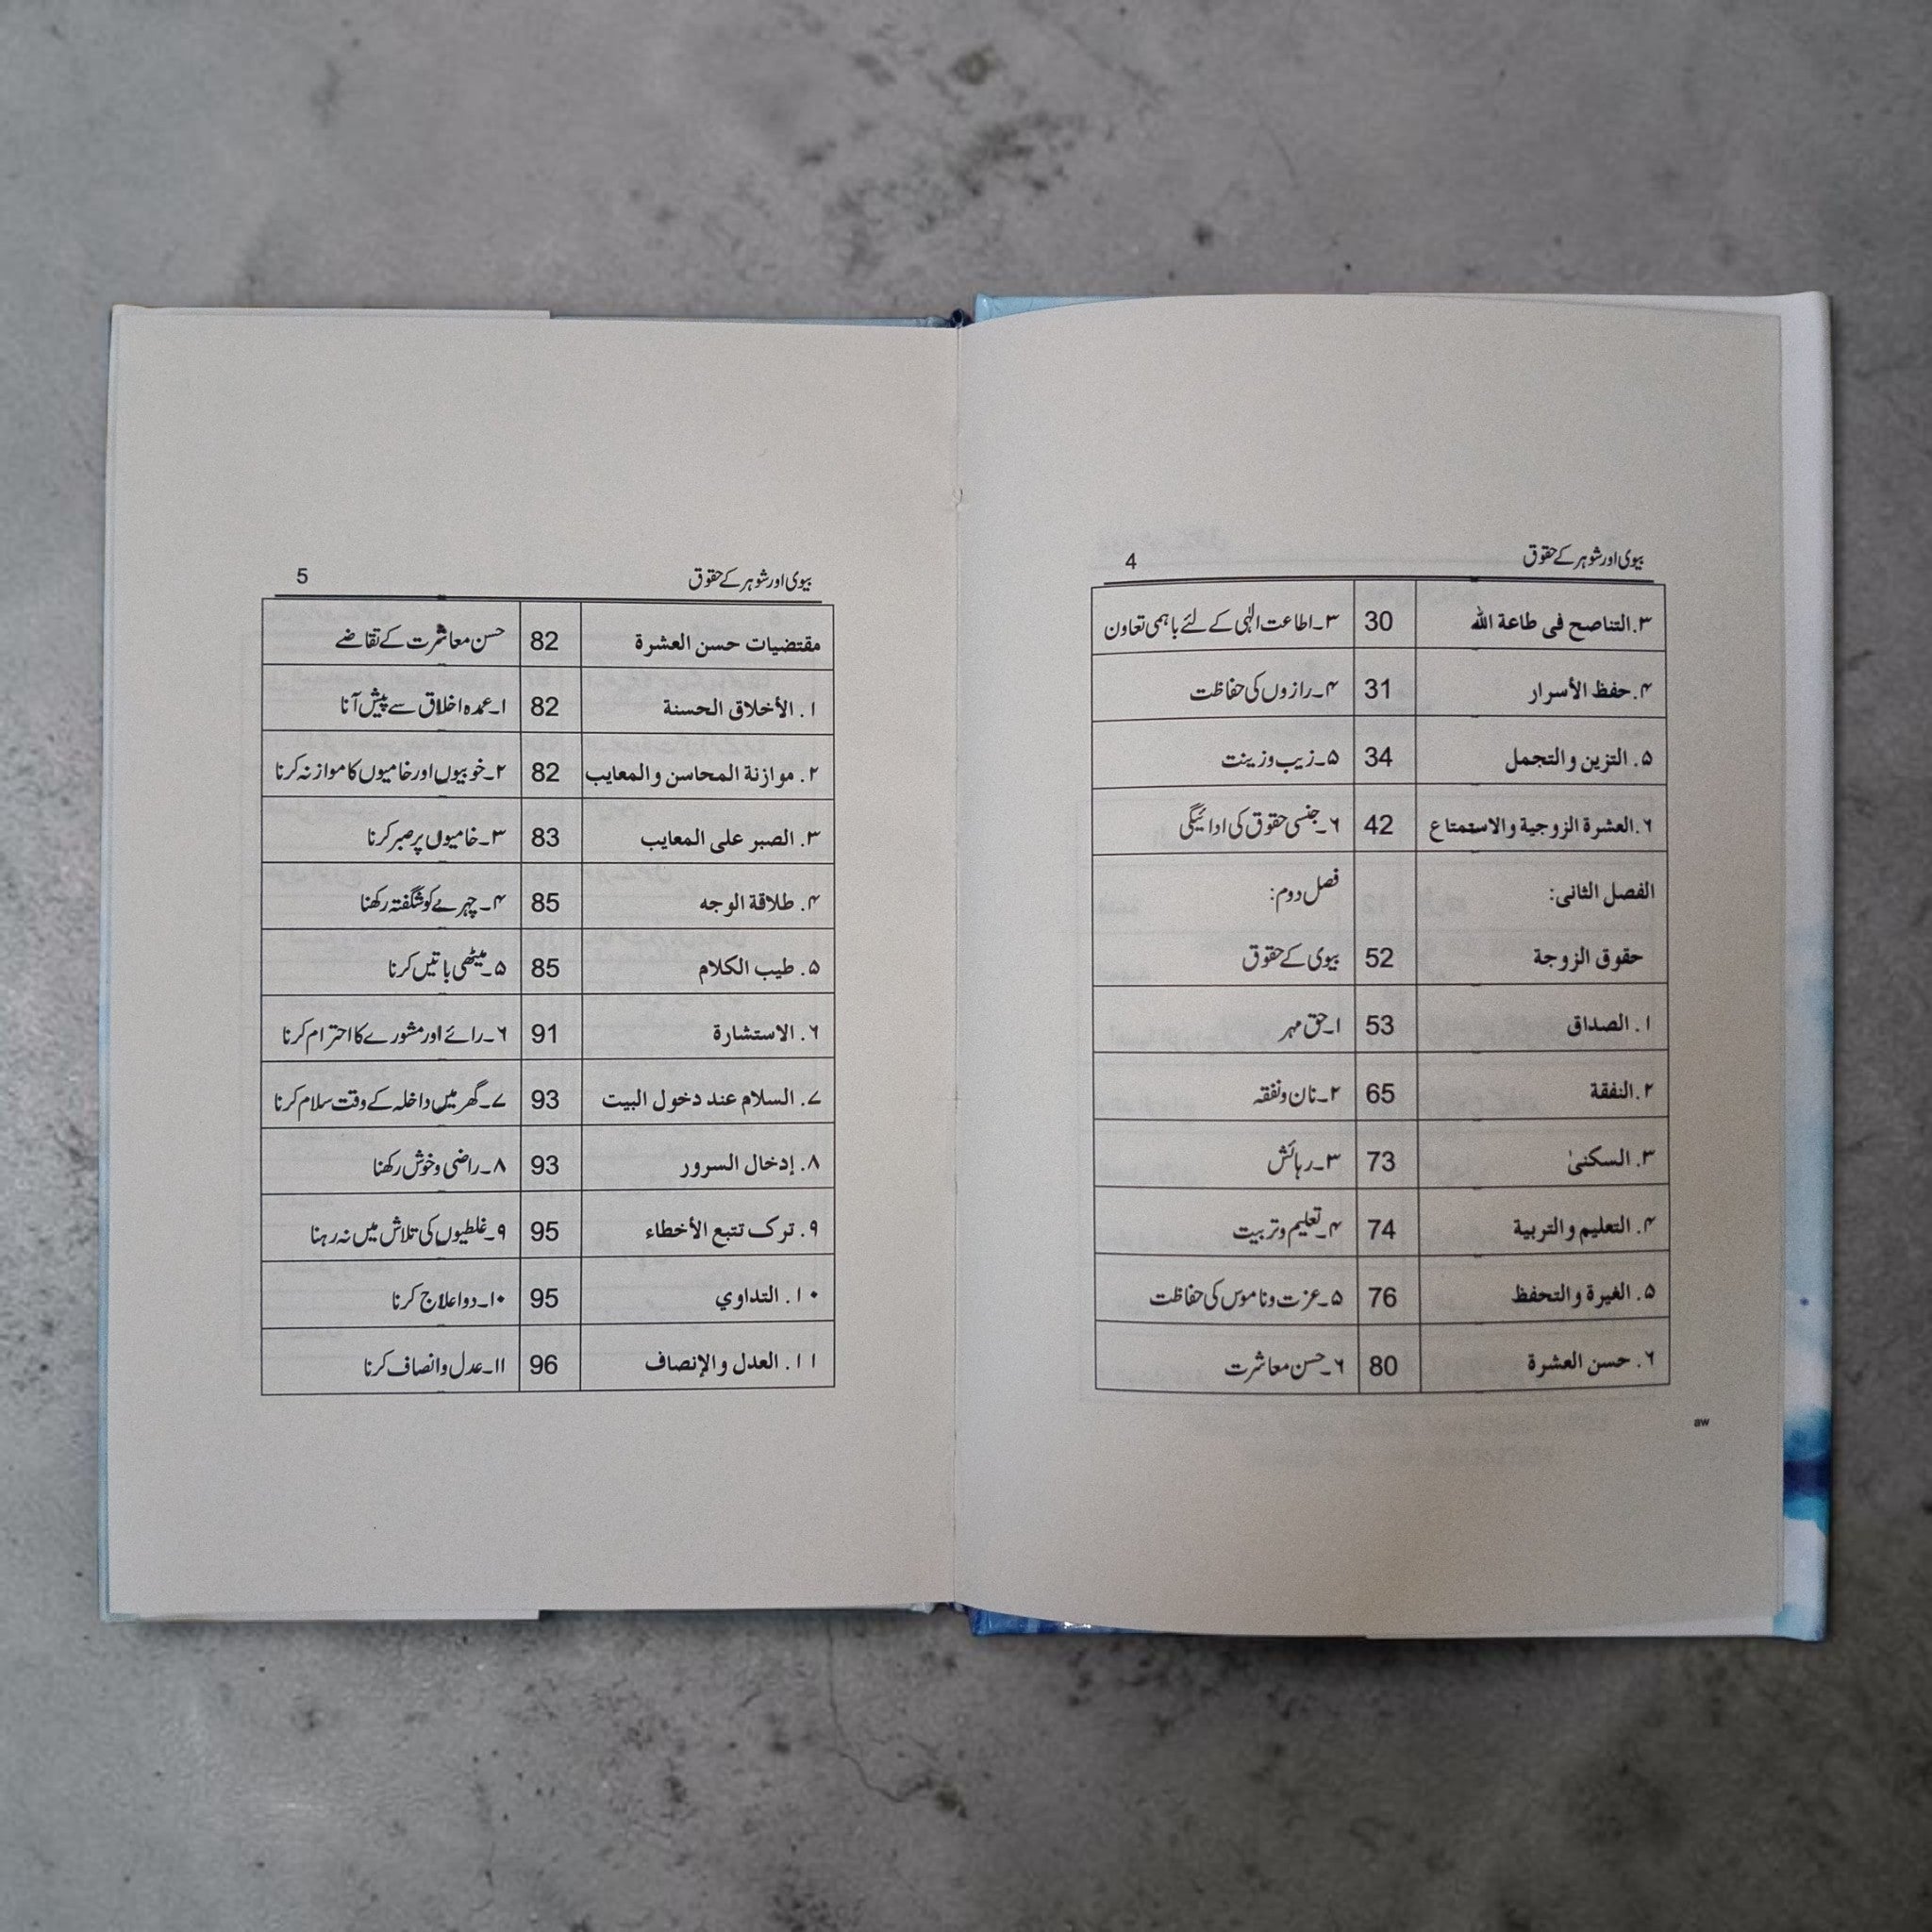 بیوی اور شوہر کے حقوق 4
۳.التناصح فی طاعة اللہ 30 ۳۔اطاعت الٰہی کے لئے باہمی تعاون
۴.حفظ الأسرار 31 ۴۔رازوں کی حفاظت
۵. التزین والتجمل 34 ۵۔زیب وزینت
۶.العشرة الزوجیة والاستمتاع 42 ۶۔جنسی حقوق کی ادائیگی
الفصل الثانی: فصل دوم:
حقوق الزوجة 52 بیوی کے حقوق
۱. الصداق 53 ۱۔حق مہر
۲.النفقة 65 ۲۔نان ونفقہ
۳. السکنیٰ 73 ۳۔رہائش
۴. التعلیم والتربیة 74 ۴۔تعلیم وتربیت
۵. الغیرة والتحفظ 76 ۵۔عزت وناموس کی حفاظت
۶. حسن العشرة 80 ۶۔حسن معاشرت
aw
بیوی اور شوہر کے حقوق 5
مقتضیات حسن العشرة 82 حسن معاشرت کے تقاضے
۱. الأخلاق الحسنة 82 ۱۔عمدہ اخلاق سے پیش آنا
۲. موازنة المحاسن والمعایب 82 ۲۔خوبیوں اور خامیوں کا موازنہ کرنا
۳. الصبر علی المعایب 83 ۳۔خامیوں پر صبر کرنا
۴. طلاقة الوجه 85 ۴۔چہرے کو شگفتہ رکھنا
۵. طیب الکلام 85 ۵۔میٹھی باتیں کرنا
۶. الاستشارة 91 ۶۔رائے اور مشورے کا احترام کرنا
۷. السلام عند دخول البیت 93 ۷۔گھر میں داخلہ کے وقت سلام کرنا
۸. إدخال السرور 93 ۸۔راضی وخوش رکھنا
۹. ترک تتبع الأخطاء 95 ۹۔غلطیوں کی تلاش میں نہ رہنا
۱۰. التداوي 95 ۱۰۔دوا علاج کرنا
۱۱. العدل والإنصاف 96 ۱۱۔عدل وانصاف کرنا